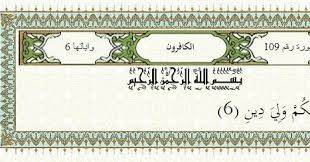 ورة رقم 109 الكافرون وآياتها 6
بسم الله الرحمن الرحيم
كُمْ وَلِيَ دِينِ (6)